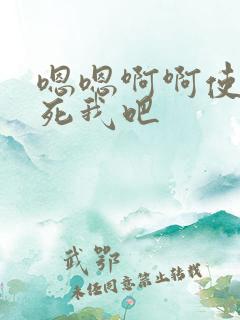 嗯嗯啊啊使
死我吧
武鄂
未经同意禁止转载